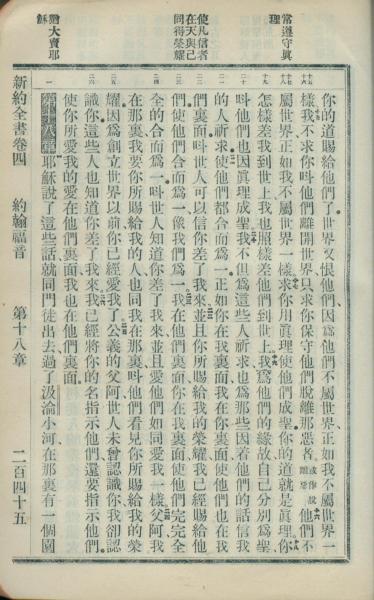 常遵守真
理
使凡信者
在天與己
同得榮耀
猶大賣耶
穌
你的道賜給他們。世界又恨他們、因爲他們不屬世界、正如我不屬世界一
樣。我不求你呌他們離開世界、只求你保守他們脫離那惡者。或作脫離罪惡 他們不
屬世界、正如我不屬世界一樣。求你用眞理使他們成聖。你的道就是眞理。你
怎樣差我到世上、我也照樣差他們到世上。我爲他們的緣故、自己分別爲聖、
呌他們也因眞理成聖。我不但爲這些人祈求、也爲那些因着他們的話信我
的人祈求。使他們都合而爲一。正如你在我裏面、我在你裏面、使他們也在我
們裏面。呌世人可以信你差了我來。並且你所賜給我的榮耀、我已經賜給他
們、使他們合而爲一、像我們爲一。我在他們裏面、你在我裏面、使他們完完全
全的合而爲一。呌世人知道你差了我來、並且愛他們如同愛我一樣。父阿、我
在那裏、我要你所賜給我的人也同我在那裏、呌他們看見你所賜給我的榮
耀。因爲創立世界以前、你已經愛我了。公義的父阿、世人未曾認識你、我卻認
識你。這些人也知道你差了我來。我已經將你的名指示他們、還要指示他們。
使你所愛我的愛在他們裏面、我也在他們裏面。
第十八章 耶穌說了這些話、就同門徒出去、過了汲淪小河、在那裏有一個園
新約全書卷四 約翰福音 第十八章 二百四十五